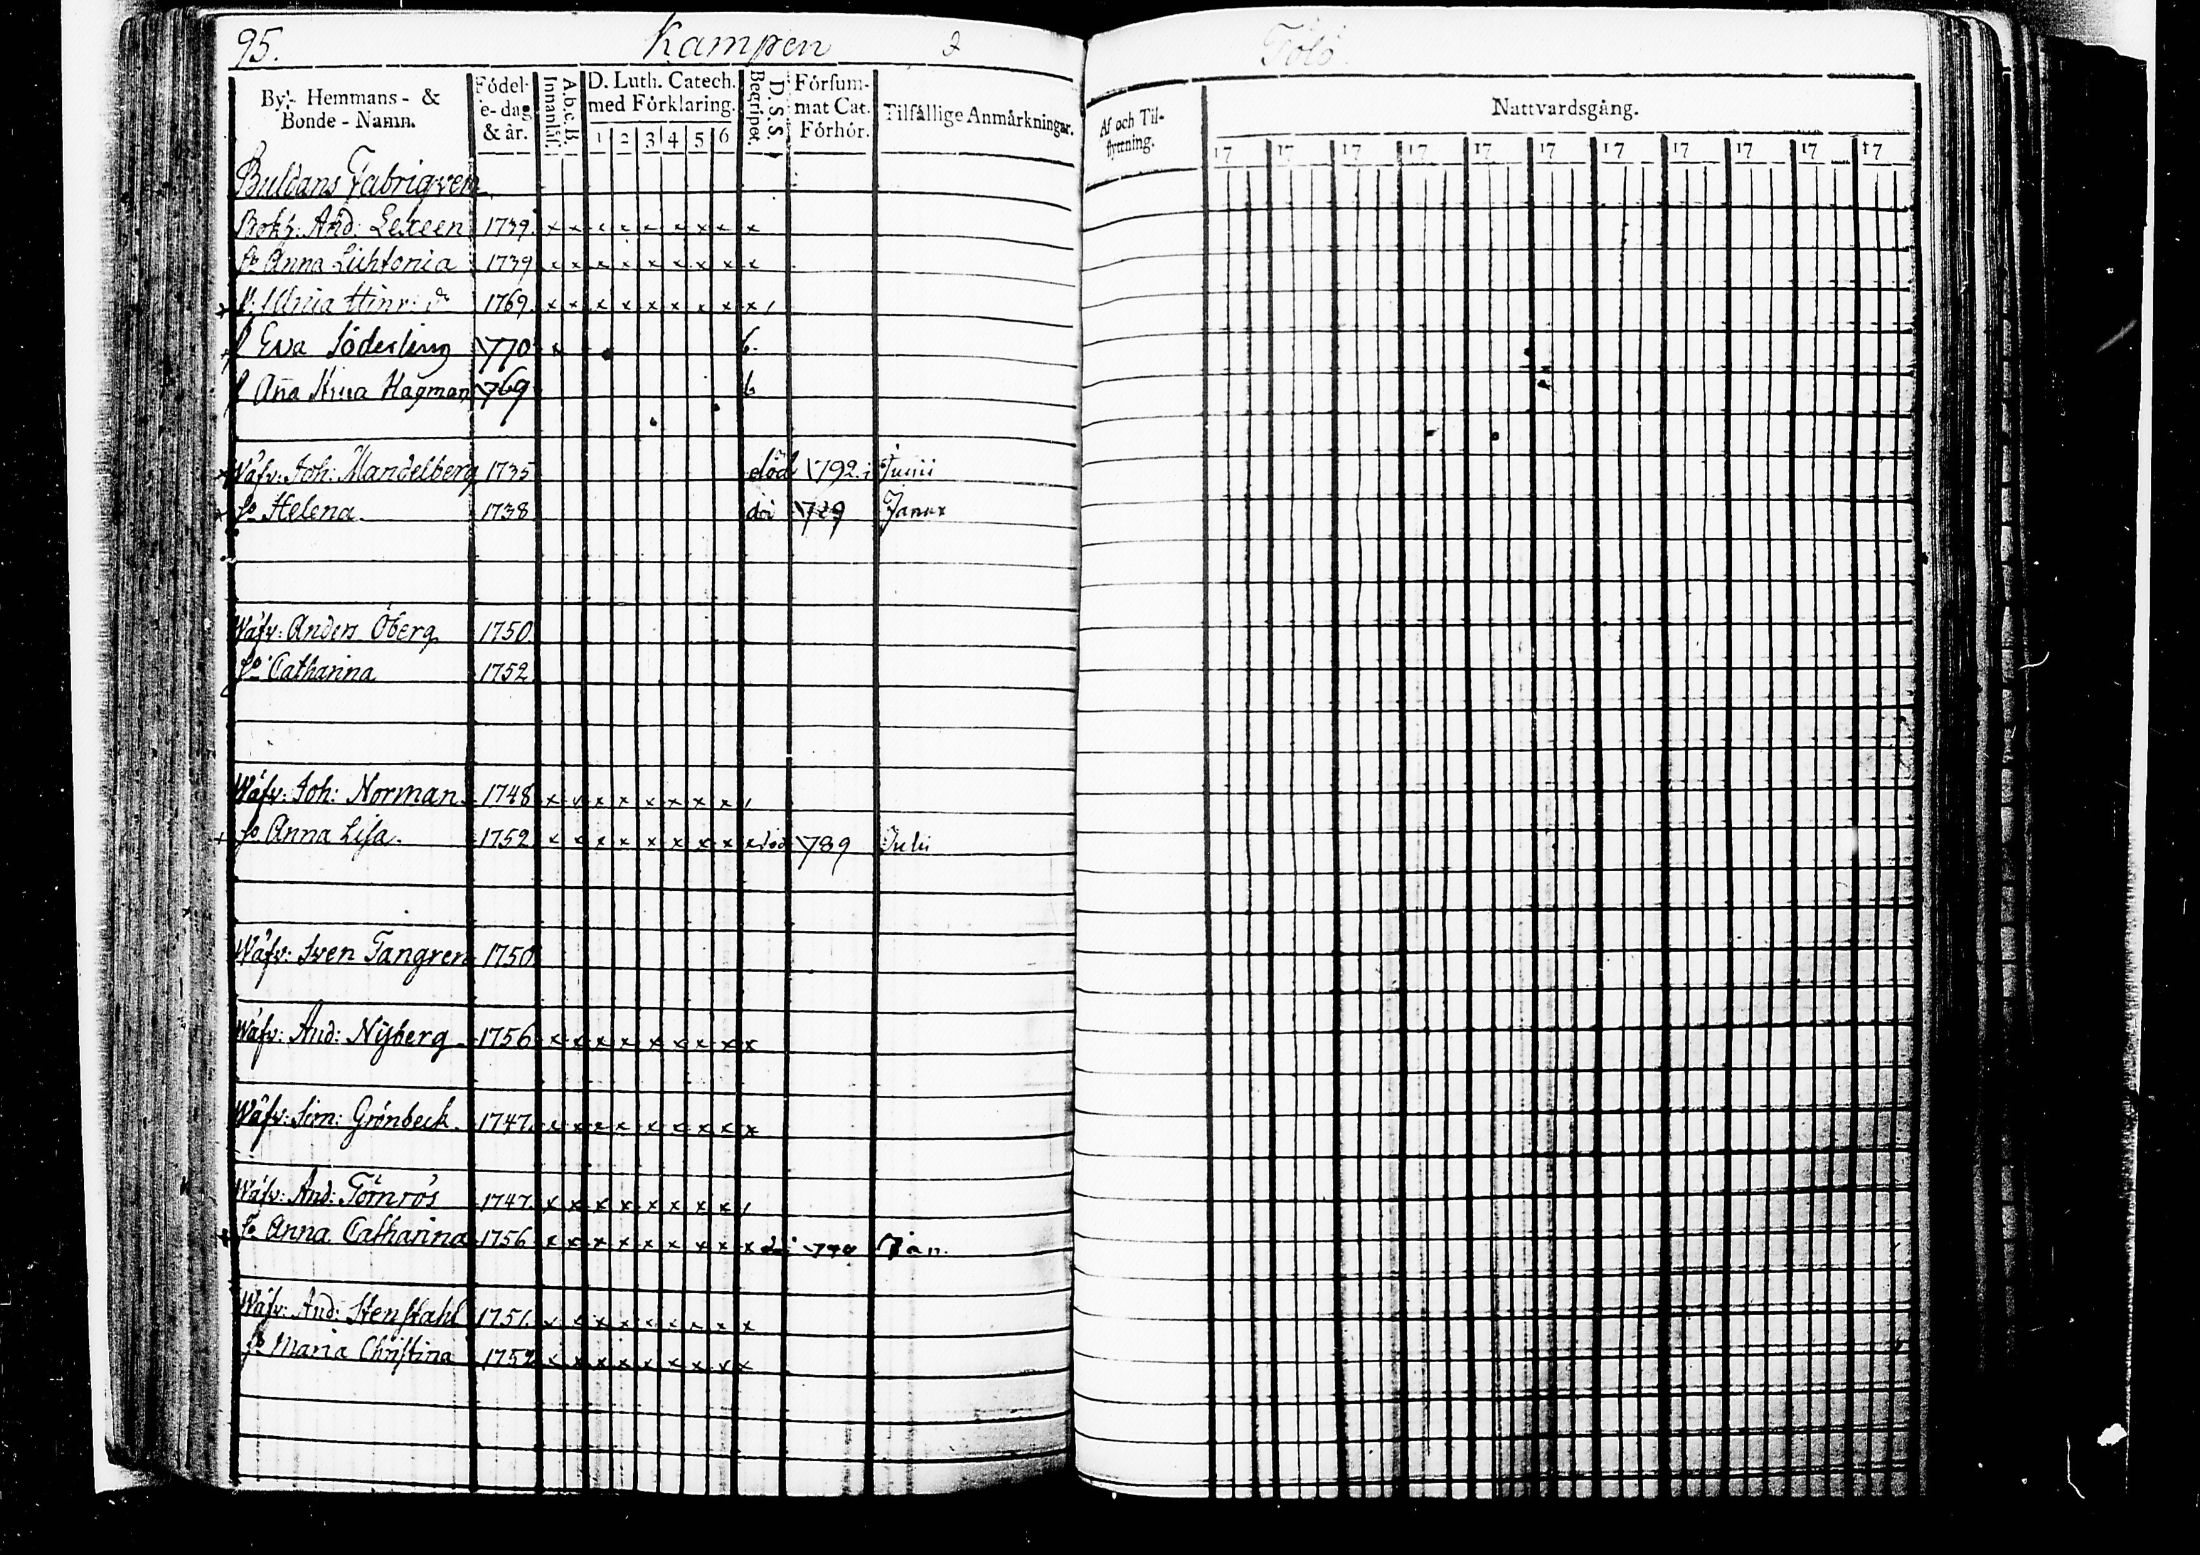 95. Kampen 2
By- Hemmans- & Bonde-Namn. Födel-e-dag & år. Innanläs. A.b.c.B. D. Luth. Catech. med Förklaring. 1 2 3 4 5 6 Begripet. D.S.S. Försummat Cat. Förhör. Tilfällige Anmärkningar.
Buldans Fabriqven
Bokh: And: Lexeen 1739 x x x x x x x x x
h:o Anna Lithtonia 1739 x x x x x x x x x
1769. x x x x x x x x x
p Eva Söderling 1770 x b.
p Aña Hagman 1769 b
Wäfv: Joh: Mandelberg 1735 död 1792. i Junii
h:o Helena 1738 dö 1789 Janux
Wäfv: Anders Öberg 1750
h:o Catharina 1752
Wäfv: Joh: Norman 1748 x x x x x x x x
h:o Anna Lisa. 1752 x x x x x x x x x död 1789 Julii
Wäfv: Sven Tangren 1750
Wäfv: And: Nyberg 1756 x x x x x x x x x
Wäfv: Sim: Grönbeck 1747 x x x x x x x x x
Wäfv: And: Törnrös 1747. x x x x x x x x
h:o Anna Catharina 1756 x x x x x x x x x Jan.
Wäfv: And: Stenstahl 1751 x x x x x x x x x
h:o Maria Christina 1752 x x x x x x x x x
Tölö
Af och Tilflyttning. Nattvardsgång.
17 17 17 17 17 17 17 17 17 17 17